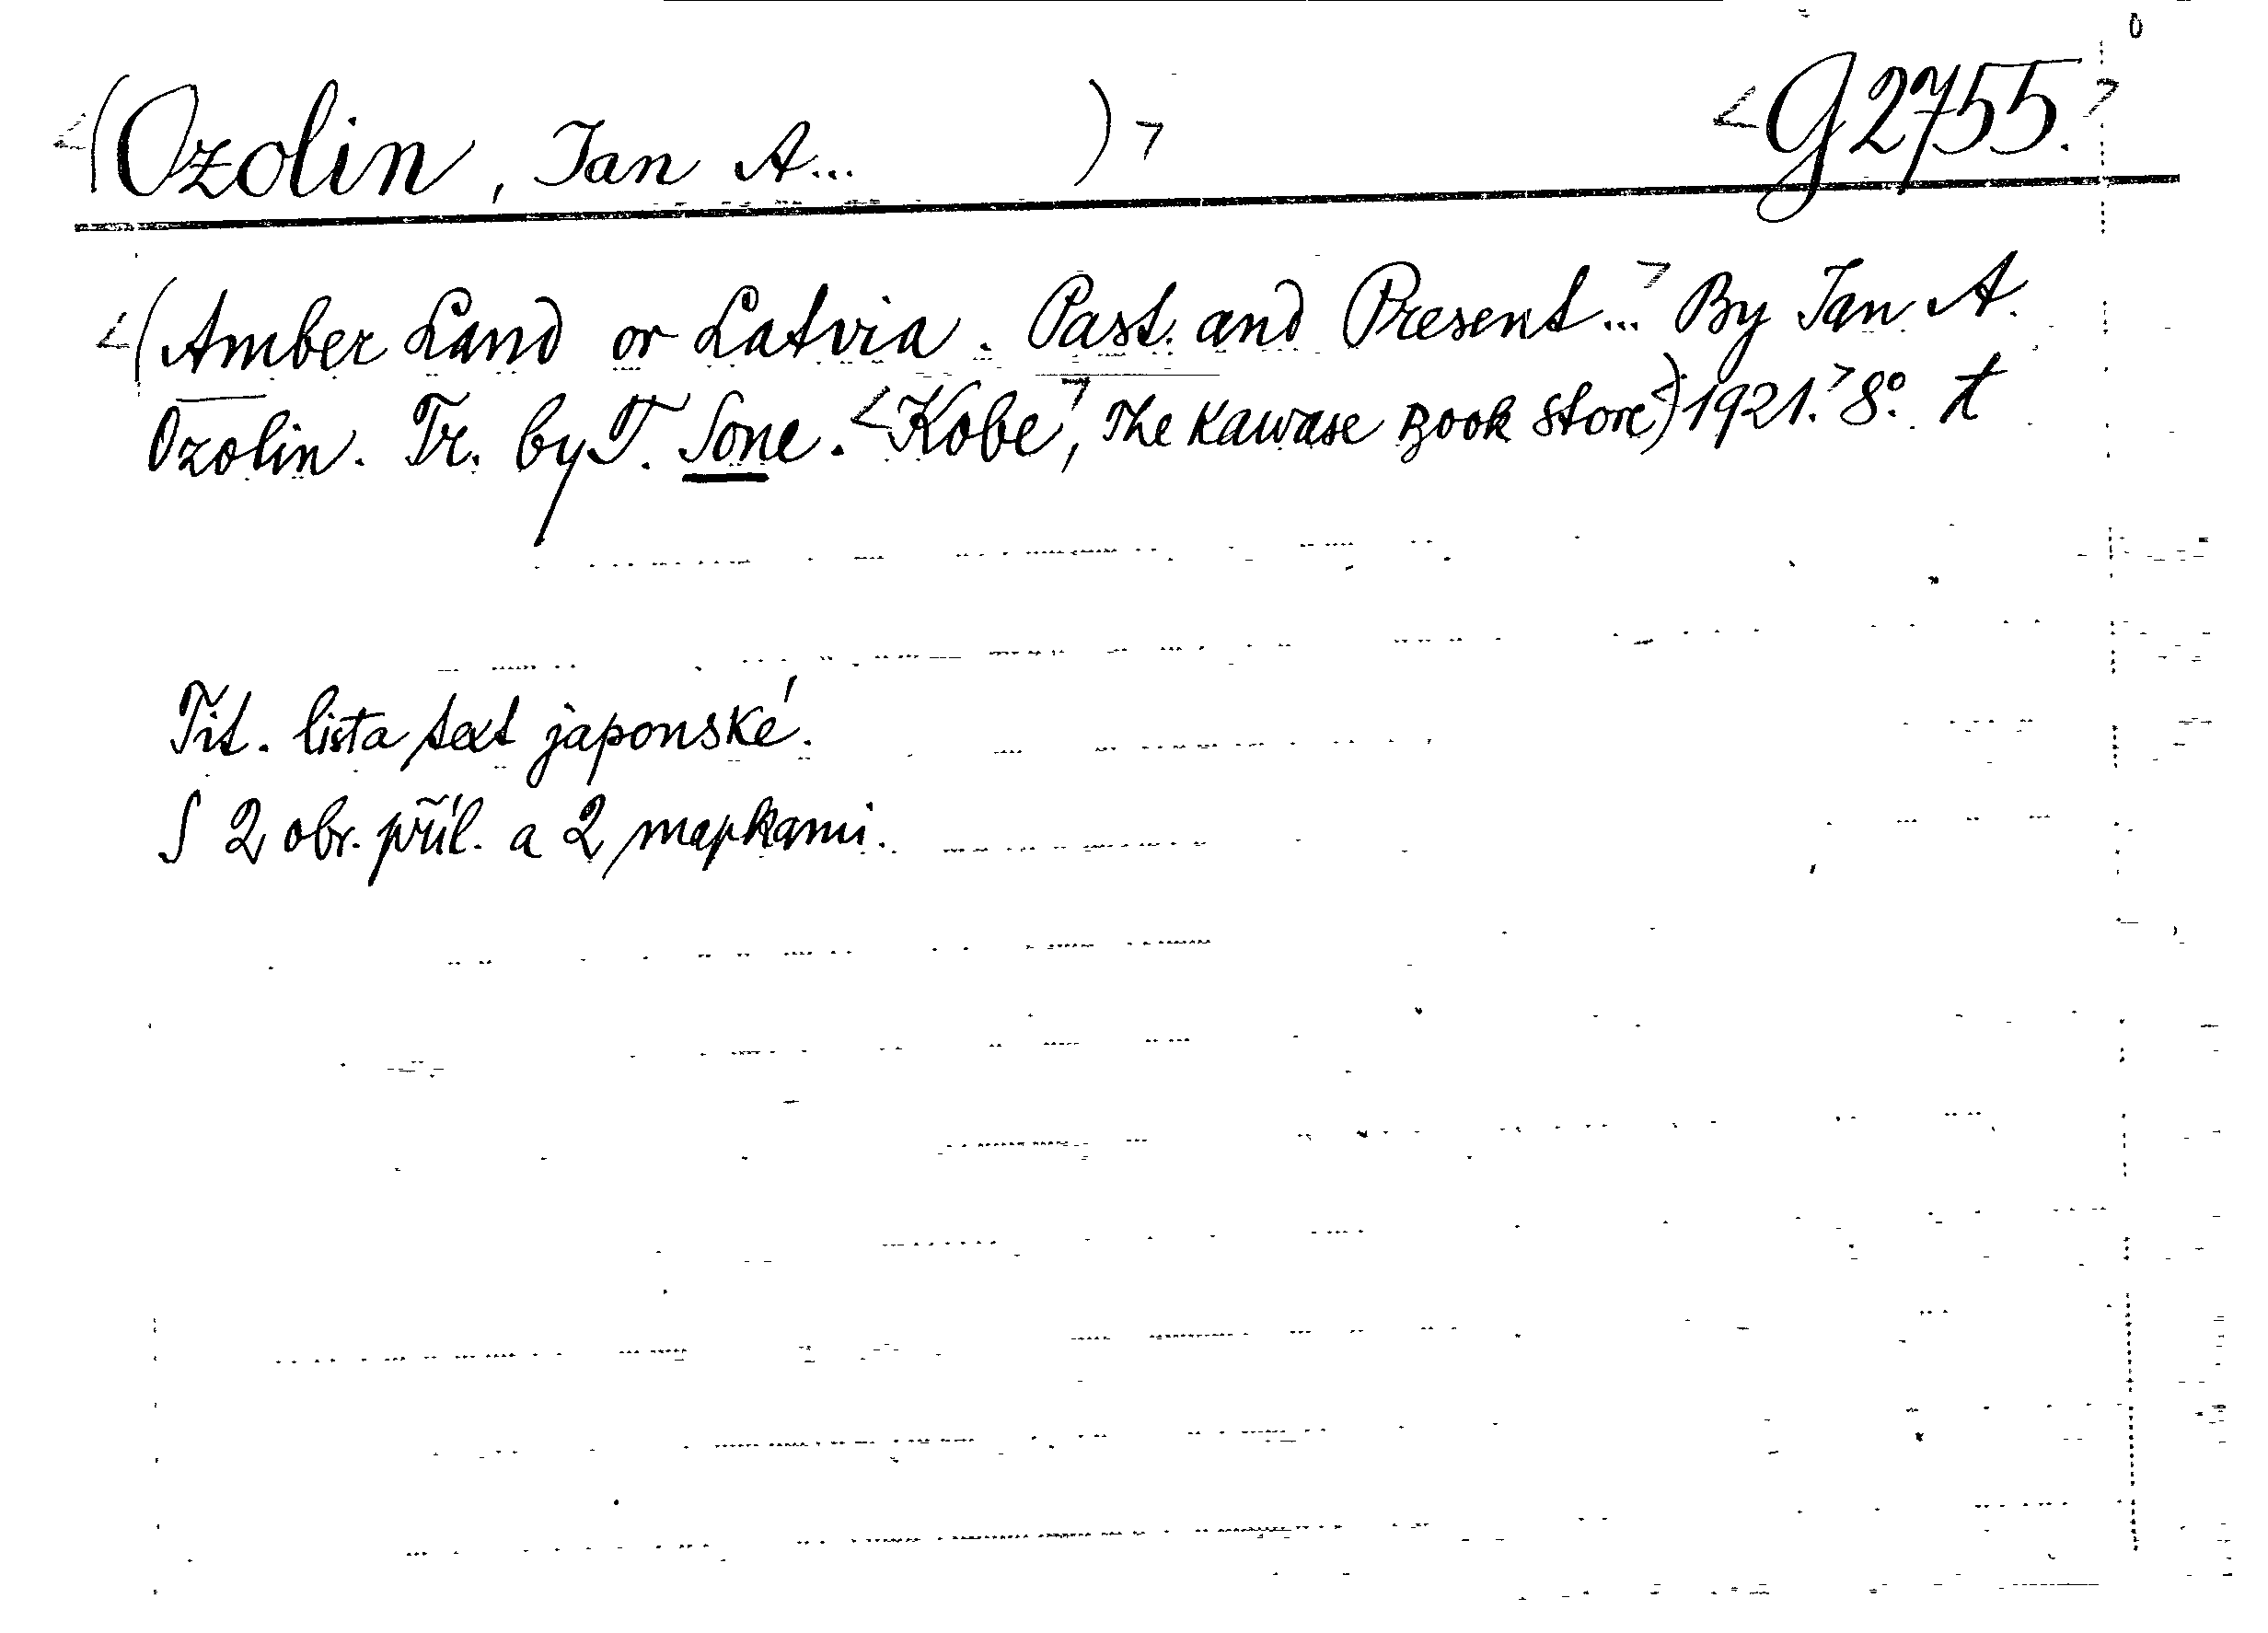 <(Ozolin, Jan A... )> <G 2755.>
<(Amber Land or Latvia. Past. and Present...> By Jan A.
Ozolin. Tr. by T. Sone. <Kobe>, The Kawase Book Store) <1921.> 8°. t
Tit. list a text japonské.
S 2 obr. příl. a 2 mapkami.